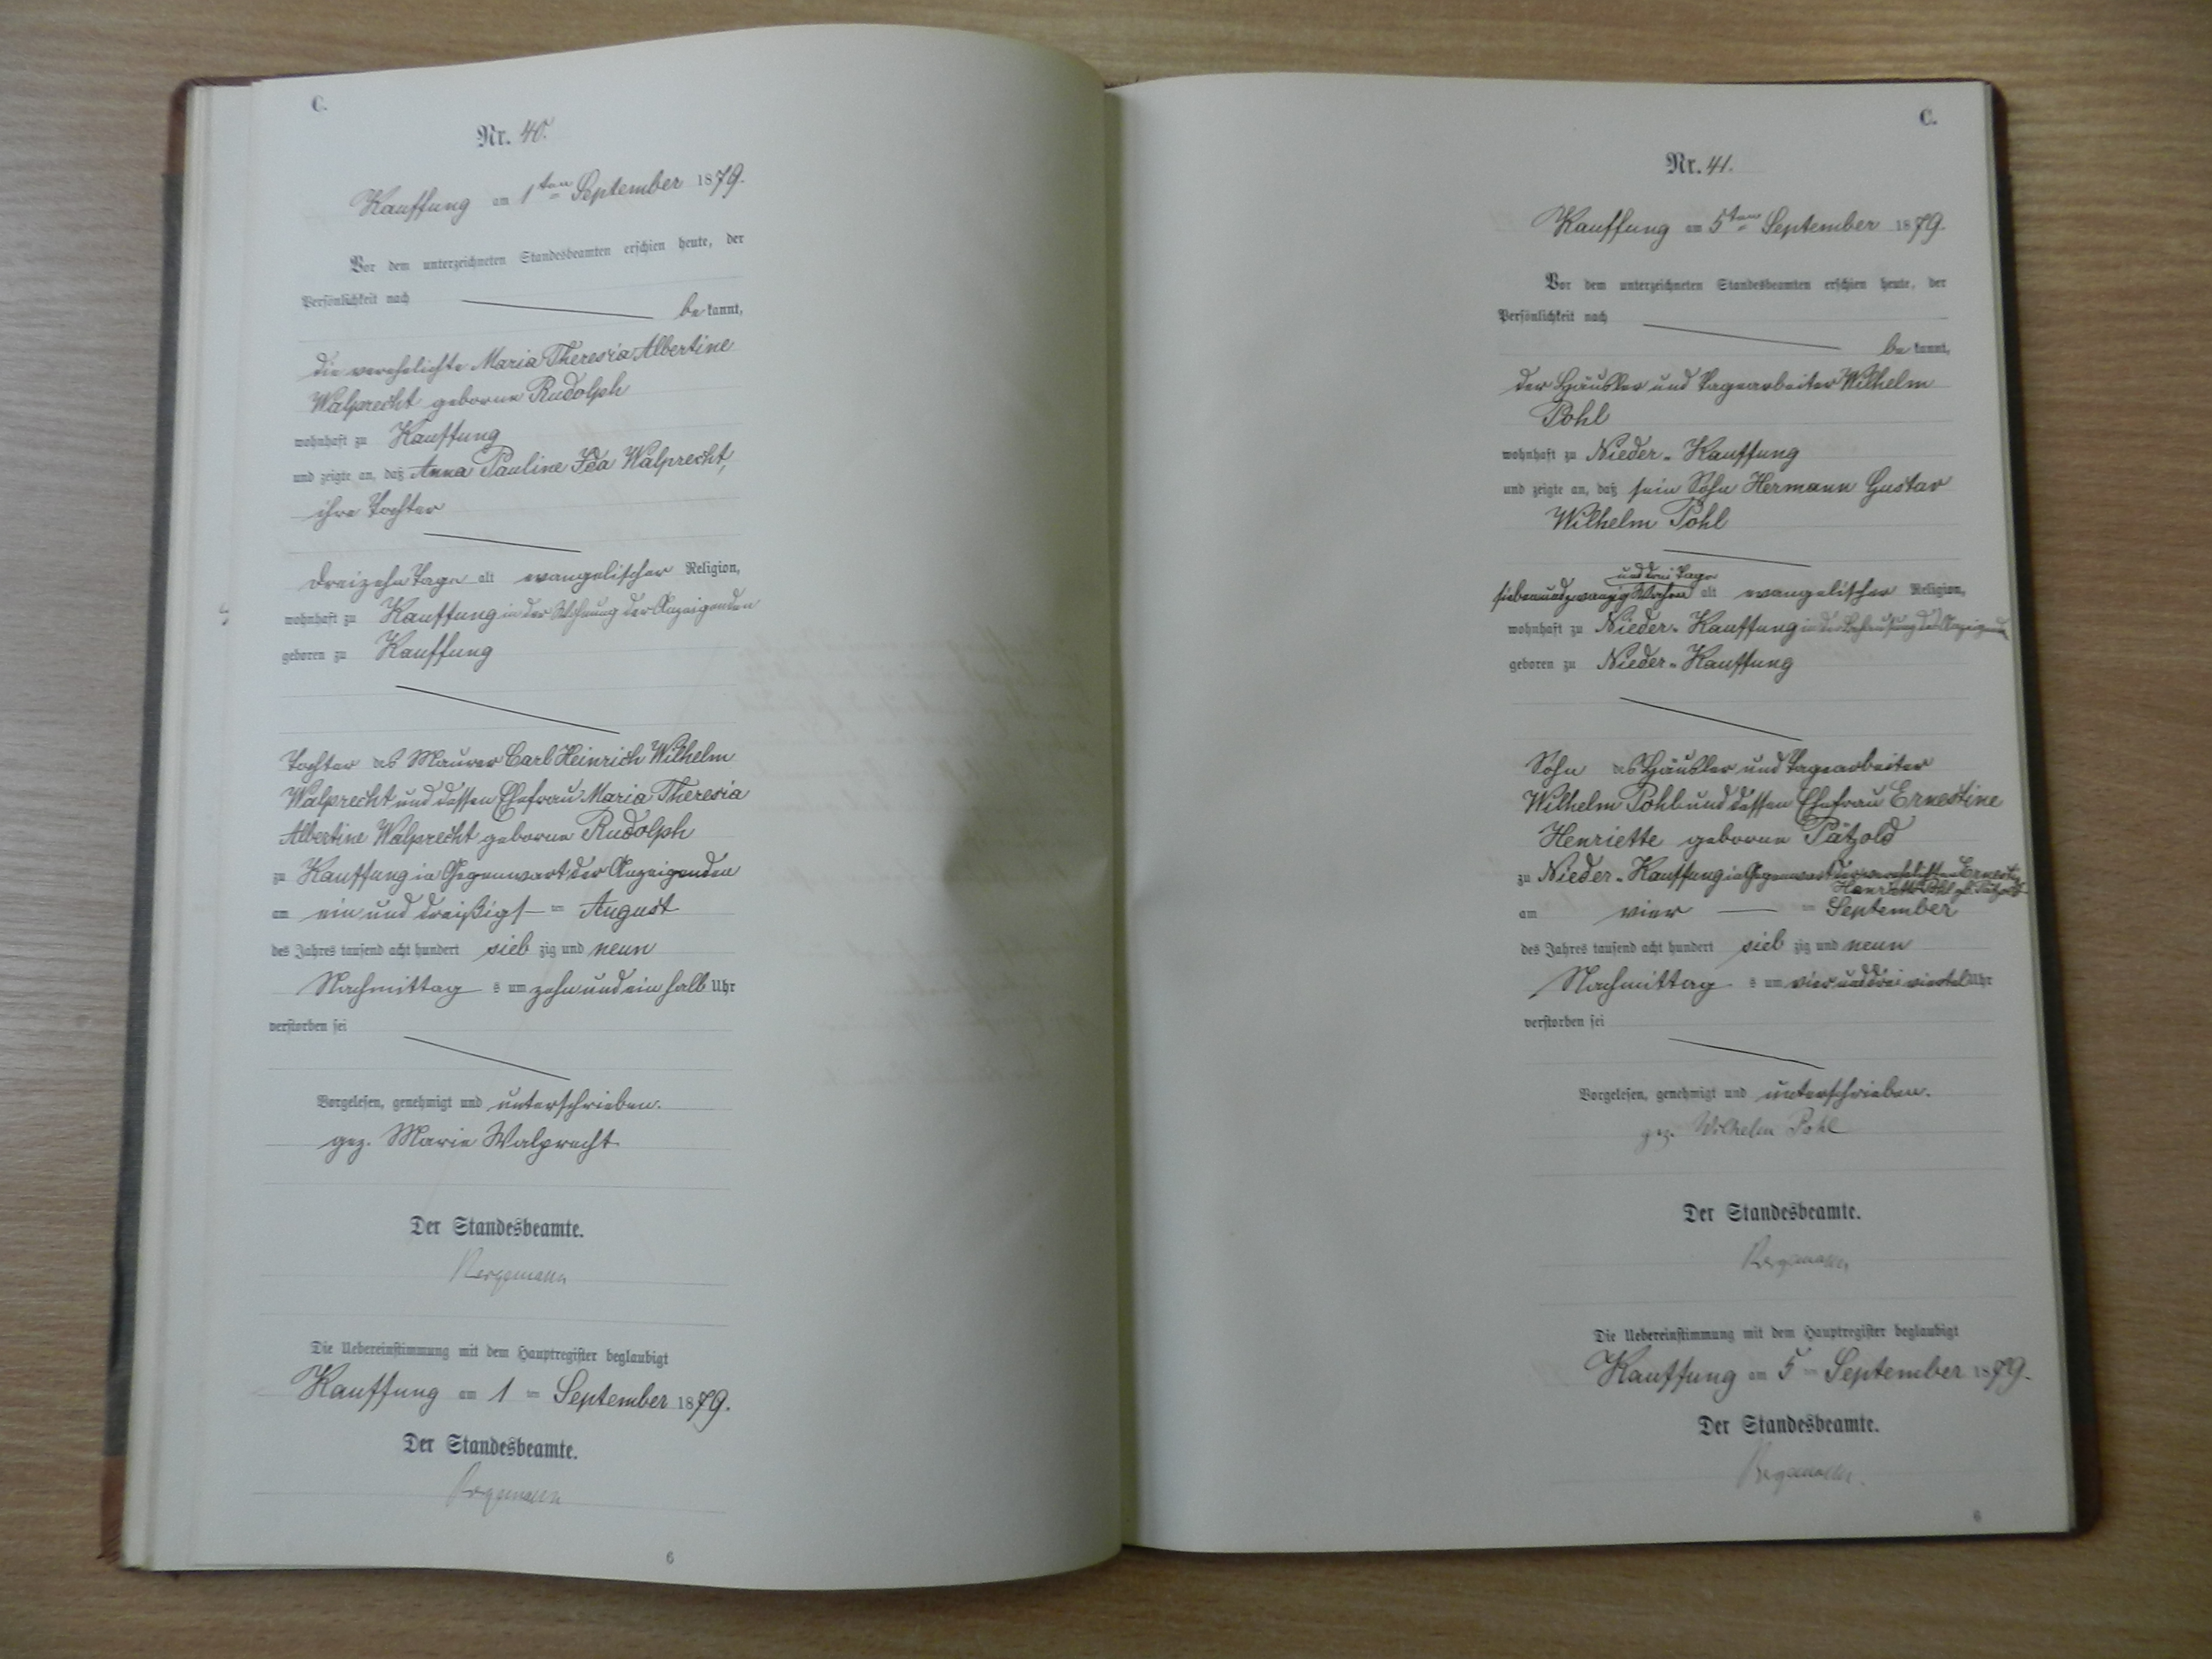 C.
Nr. 40.
Kauffung am 1ten September 1879.
Vor dem unterzeichneten Standesbeamten erschien heute, der
Persönlichkeit nach
be kannt,
die verehelichte Maria Theresia Albertine
Walprecht geborne Rudolph
wohnhaft zu Kauffung
und zeigte an, daß Anna Pauline Ida Walprecht,
ihre Tochter
dreizehn Tage alt evangelischer Religion,
wohnhaft zu Kauffung in der Wohnung der Anzeigenden
geboren zu Kauffung
Tochter des Maurer Carl Heinrich Wilhelm
Walprecht und dessen Ehefrau Maria Theresia
Albertine Walprecht geborne Rudolph
zu Kauffung in Gegenwart der Anzeigenden
am ein und dreißigs ten August
des Jahres tausend acht hundert sieb zig und neun
Nachmittag s um zehn und ein halb Uhr
verstorben sei
Vorgelesen, genehmigt und unterschrieben.
gez. Marie Walprecht
Der Standesbeamte.
Bergemann
Die Uebereinstimmung mit dem Hauptregister beglaubigt
Kauffung am 1 ten September 1879.
Der Standesbeamte.
Bergemann
6
C.
Nr. 41.
Kauffung am 5ten September 1879.
Vor dem unterzeichneten Standesbeamten erschien heute, der
Persönlichkeit nach
be kannt,
der Häusler und Tagearbeiter Wilhelm
Pohl
wohnhaft zu Nieder-Kauffung
und zeigte an, daß sein Sohn Hermann Gustav
Wilhelm Pohl
und drei Tage
siebenundzwanzig Wochen alt evangelischer Religion,
wohnhaft zu Nieder-Kauffung in der Behausung des Anzeigenden
geboren zu Nieder-Kauffung
Sohn des Häusler und Tagearbeiter
Wilhelm Pohl und dessen Ehefrau Ernestine
Henriette geborne Pätzold
zu Nieder-Kauffung in Gegenwart der verehelichten Ernestine
Henriette Pohl geb. Pätzold
am vier ten September
des Jahres tausend acht hundert sieb zig und neun
Nachmittag s um vier und drei viertel Uhr
verstorben sei
Vorgelesen, genehmigt und unterschrieben.
gez. Wilhelm Pohl
Der Standesbeamte.
Bergemann
Die Uebereinstimmung mit dem Hauptregister beglaubigt
Kauffung am 5 ten September 1879.
Der Standesbeamte.
Bergemann
6